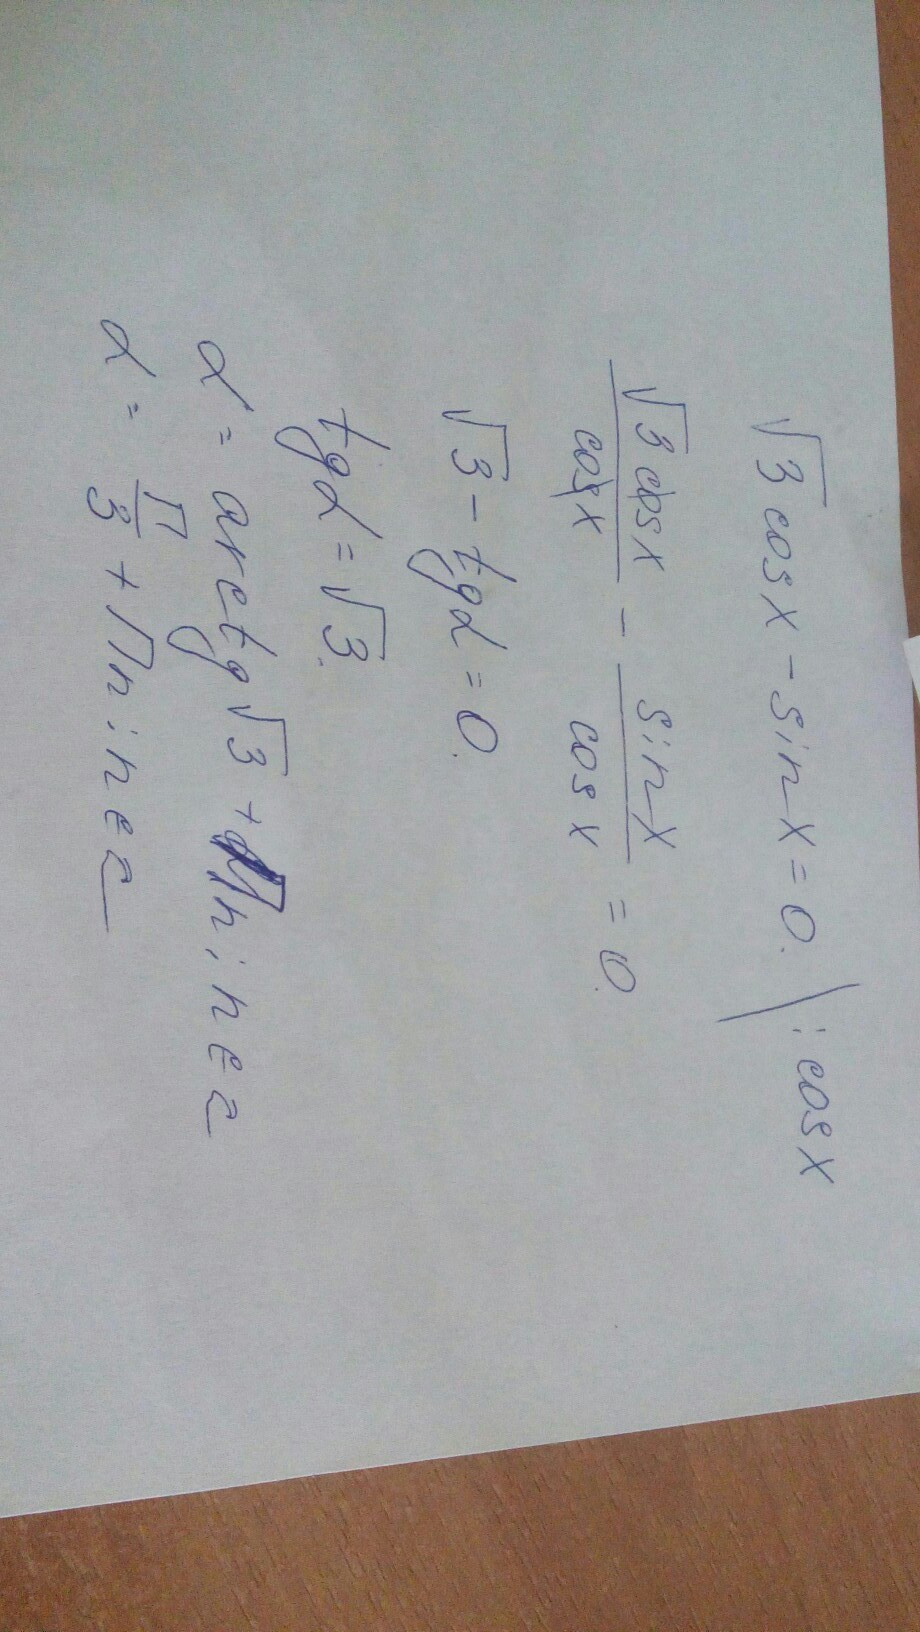 √3 cosx - sinx = 0. | : cosx
√3 cosx / cosx - sinx / cosx = 0.
√3 - tgα = 0.
tgα = √3.
α = arctg√3 + Пn; n ∈ Z
α = П/3 + Пn; n ∈ Z